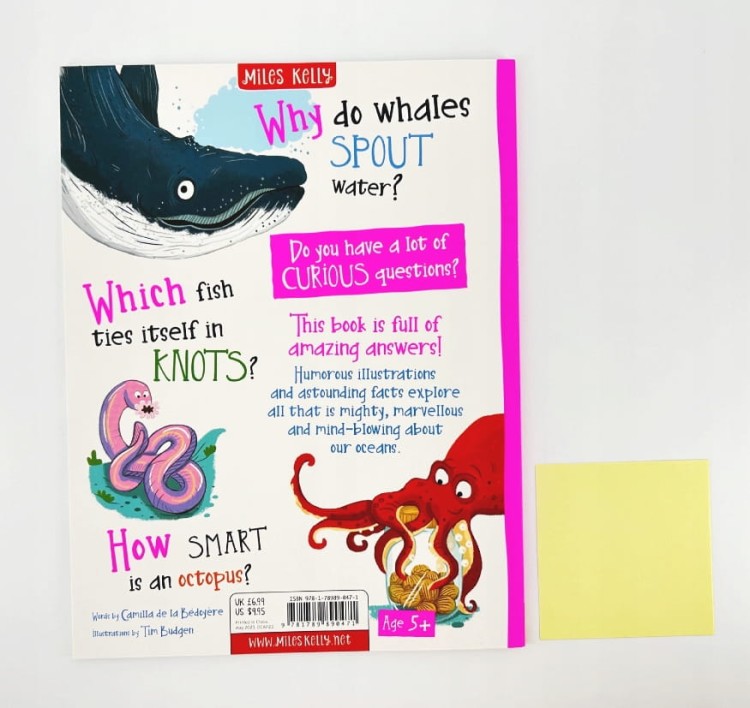 Miles Kelly
Why do whales
SPOUT
water?
Do you have a lot of
CURIOUS questions?
Which fish
ties itself in
KNOTS?
This book is full of
amazing answers!
Humorous illustrations
and astounding facts explore
all that is mighty, marvellous
and mind-blowing about
our oceans.
How SMART
is an octopus?
Words by Camilla de la Bédoyère
Illustrations by Tim Budgen
UK £6.99
US $9.95
Printed in China
ISBN 978-1-78989-047-1
9 781789 890471
www.mileskelly.net
Age 5+